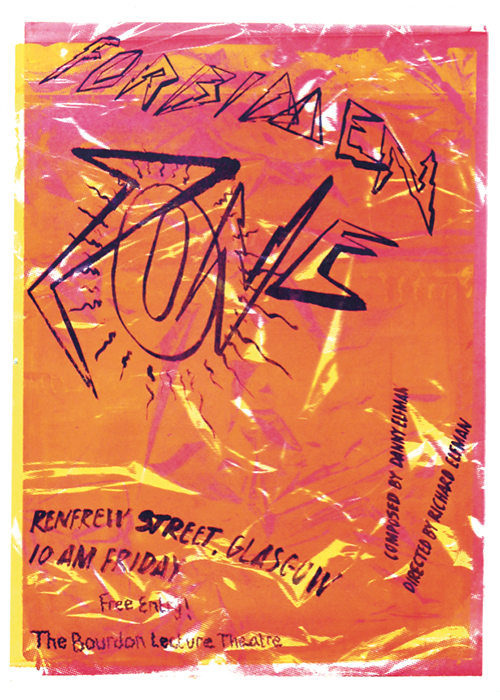 FORBIDDEN
ZONE
COMPOSED BY DANNY ELFMAN
DIRECTED BY RICHARD ELFMAN
RENFREW STREET, GLASGOW
10 AM FRIDAY
Free Entry!
The Bourdon Lecture Theatre